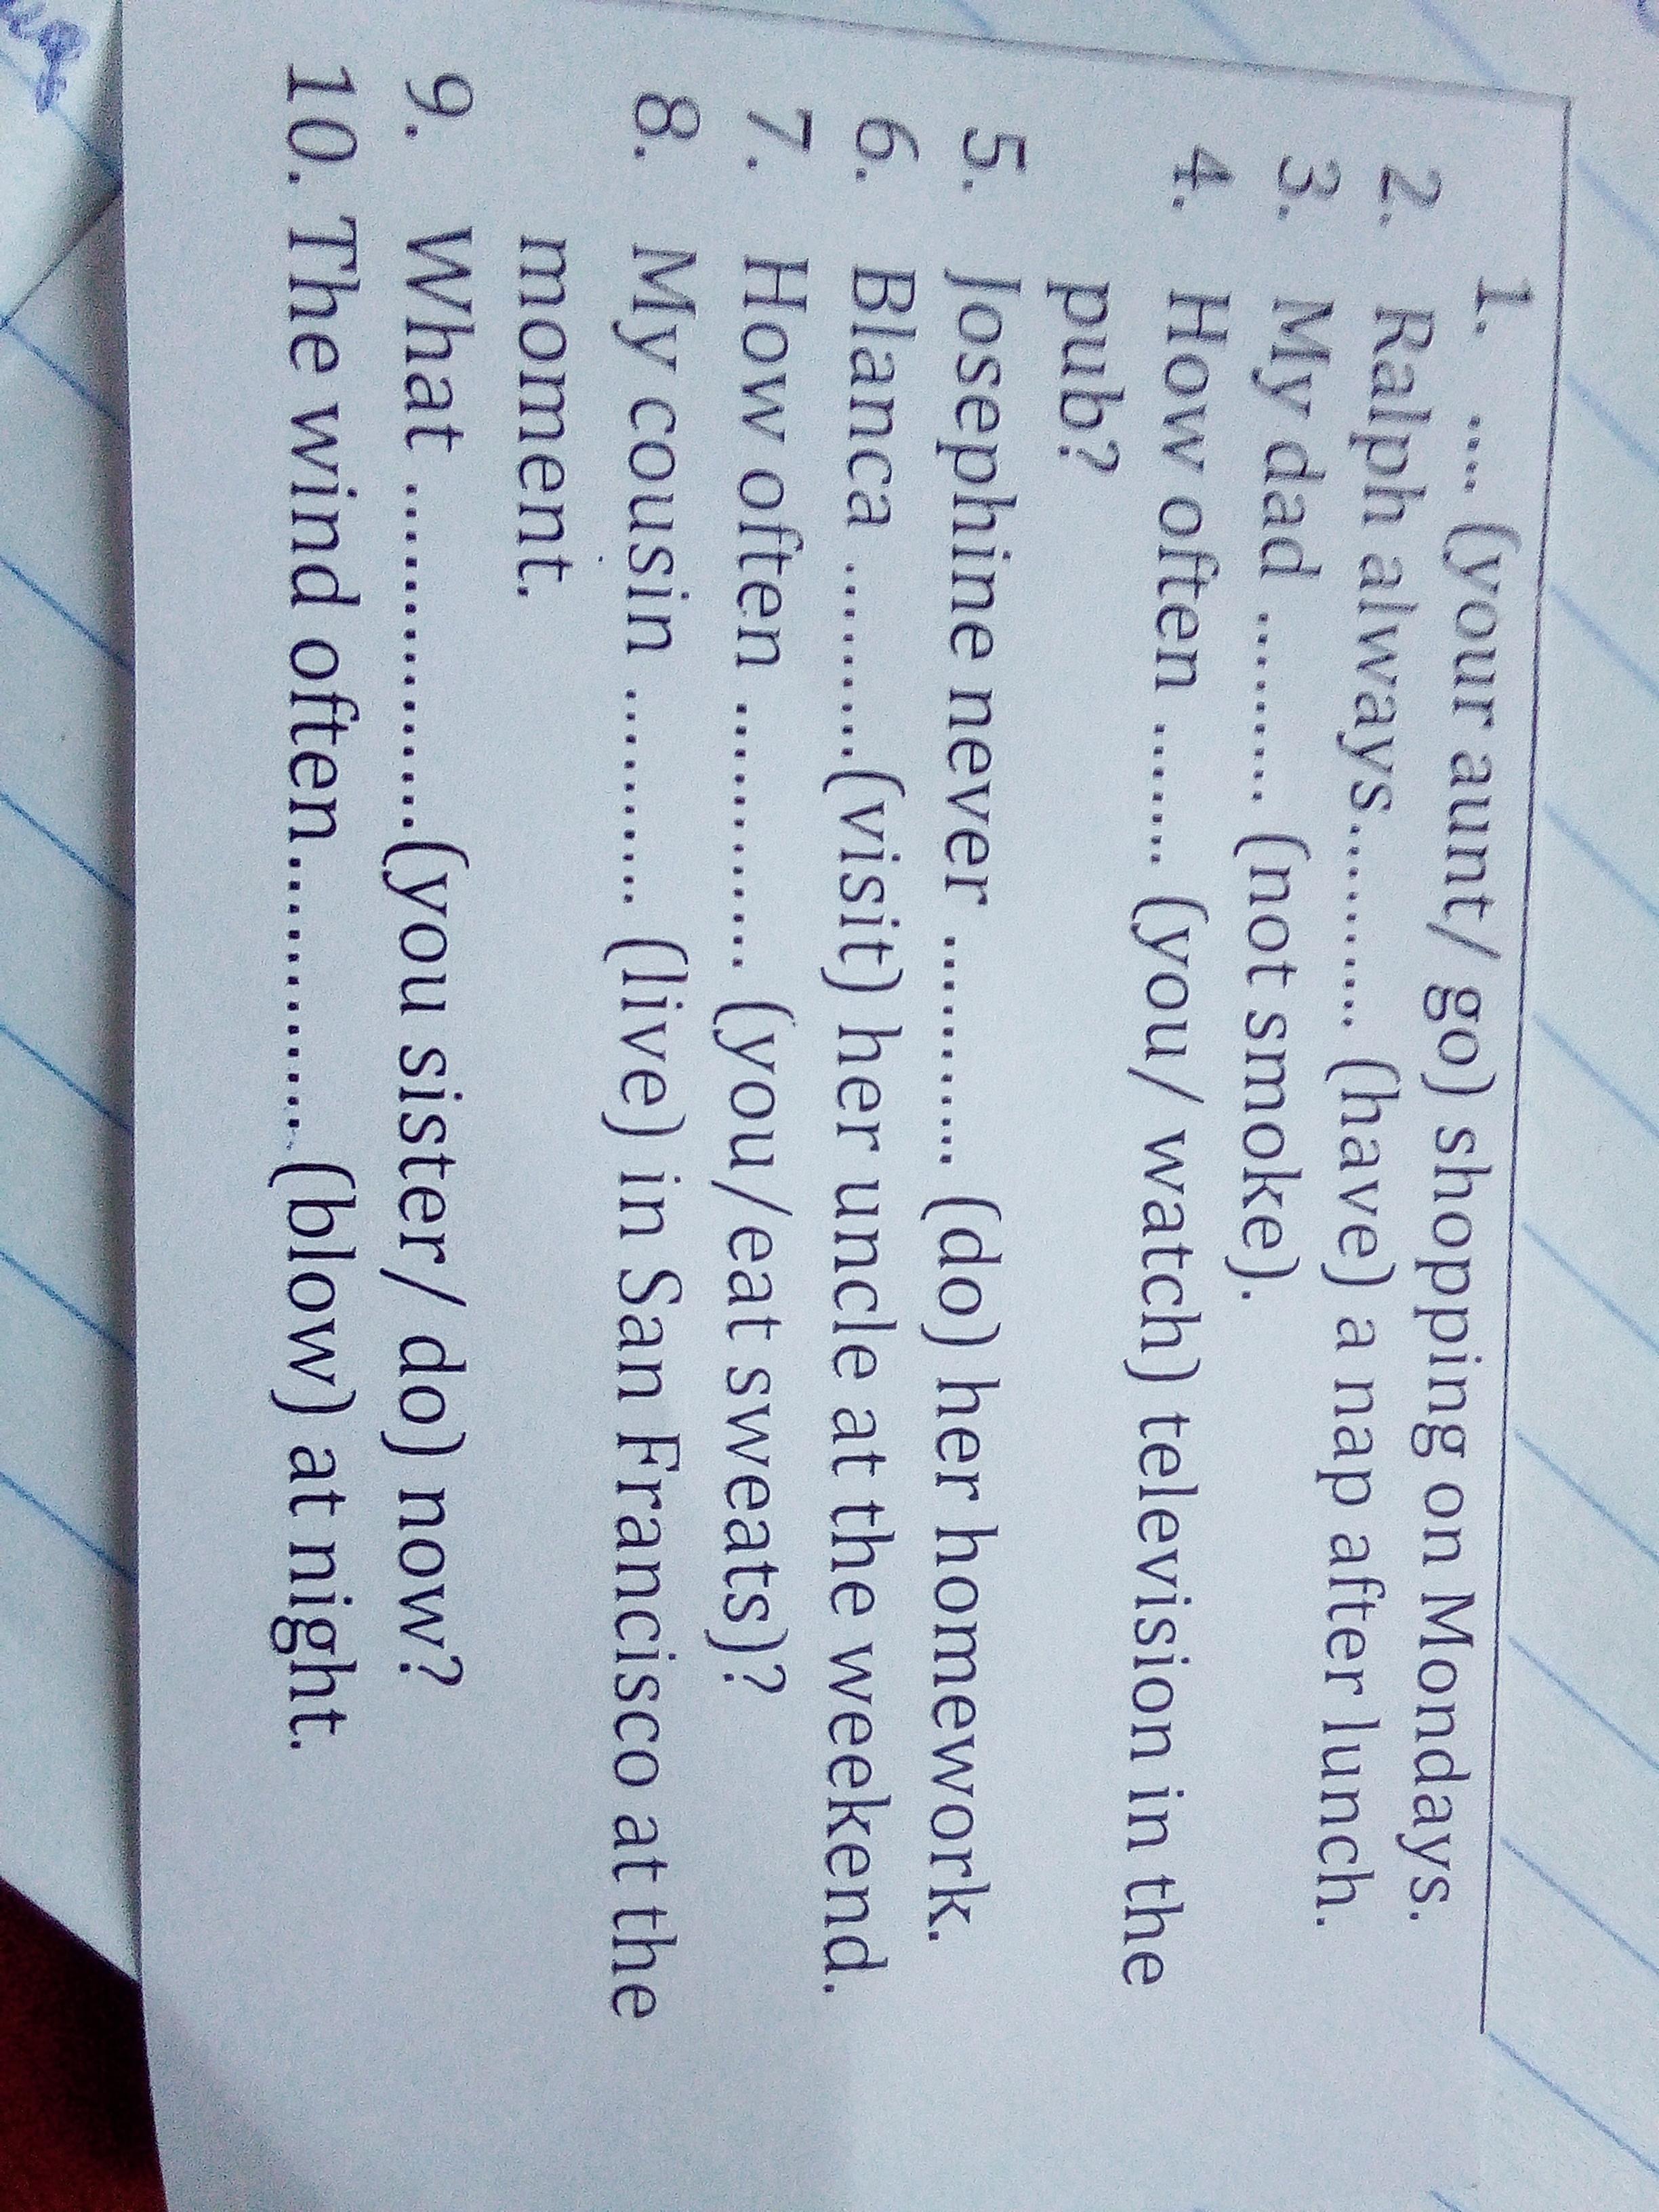 1. .... (your aunt/ go) shopping on Mondays.
2. Ralph always.......... (have) a nap after lunch.
3. My dad ......... (not smoke).
4. How often ...... (you/ watch) television in the
pub?
5. Josephine never .......... (do) her homework.
6. Blanca .........(visit) her uncle at the weekend.
7. How often ............ (you/eat sweats)?
8. My cousin .......... (live) in San Francisco at the
moment.
9. What ................(you sister/ do) now?
10. The wind often............. (blow) at night.